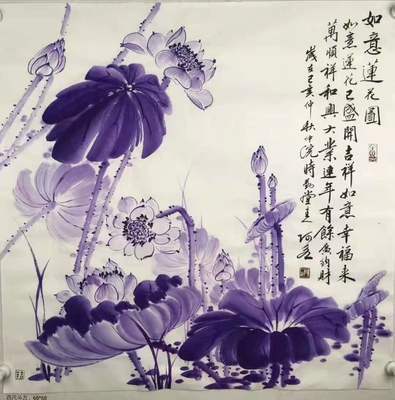 如意蓮花圖
如意蓮花已盛開吉祥如意幸福来
萬順祥和興大業連年有餘廣納財
歲在己亥仲秋中浣時堂主